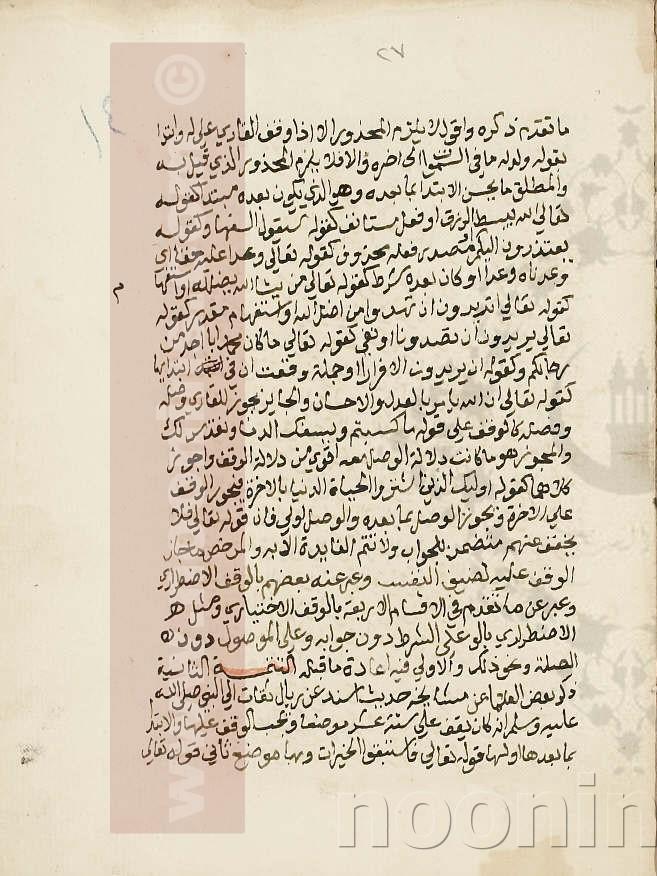 ٢٧
ما تقدم ذكره واقول لا يلزم المحذور الا اذا وقف القاري على له وابتدا
بقوله وله ما في السموات الى اخره والا فلا يلزم المحذور الذي قيل به
والمطلق ما يحسن الابتدا بما بعده وهو الذي يكون بعده مبتدا كقوله
تعالى الله يبسط الرزق او فعل مستانف كقوله سيقول السفها وكقوله
يعتذرون اليكم او مصدر فعله محذوف كقوله تعالى وعدا عليه حقا اي
وعدناه وعدا او كان بعده شرط كقوله تعالى من يشا الله يضلله او استفهاما
كقوله تعالى اتريدون ان تهدوا من اضل الله او استفهام مقدر كقوله
تعالى يريدون ان تصدونا او نفي كقوله تعالى ما كان محمد ابا احد من
رجالكم وكقوله ان يريدون الا فرارا او جملة وقعت ان في ابتدايها
كقوله تعالى ان الله يامر بالعدل والاحسان والجايز يجوز للقاري وصله
وفصله كالوقف على قوله ما كسبتم ويسفك الدما ونقدس لك
والمجوز هو ما كانت دلالة الوصل معه اقوى من دلالة الوقف واجوز
كلاهما كقوله اوليك الذين اشتروا الحياة الدنيا بالاخرة فيجوز الوقف
على الاخرة ويجوز الوصل بما بعده والوصل اولى فان قوله تعالى فلا
يخفف عنهم متضمن للجواب ولا تتم الفايدة الا به والمرخص ما جاز
الوقف عليه لضيق النفس وعبر عنه بعضهم بالوقف الاضطراري
وعبر عن ما تقدم في الاقسام الاربعة بالوقف الاختياري ومثل هو
الاضطراري بالوقف على الشرط دون جوابه وعلى الموصول دون
الصلة ونحو ذلك والاولى فيه اعادة ما قبله التتمة الثانية
ذكر بعض العلما عن مشايخه حديث اسند عن رجال ثقات الى النبي صلى الله
عليه وسلم انه كان يقف على ستة عشر موضعا ويحب الوقف عليها والابتدا
بما بعدها اولها قوله تعالى فاستبقوا الخيرات وبها موضع ثاني قوله تعالى
م
noonin